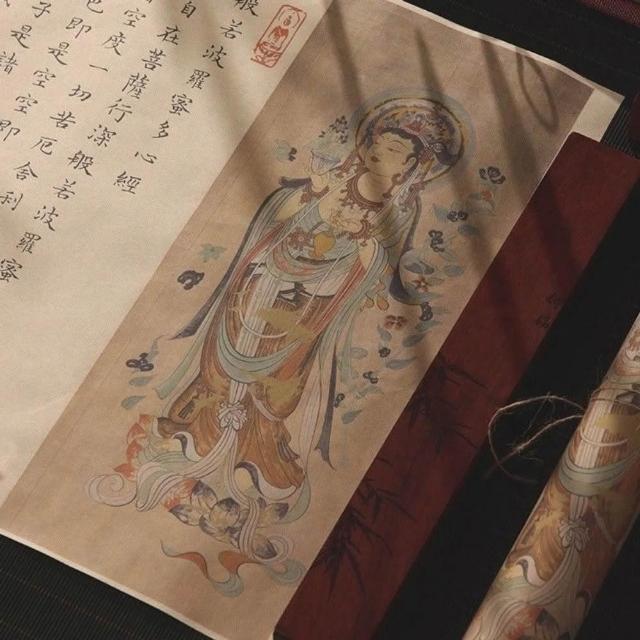 般若波羅蜜多心經
自在菩薩行深般若波羅蜜
空度一切苦厄舍利
即是空空即
子是諸